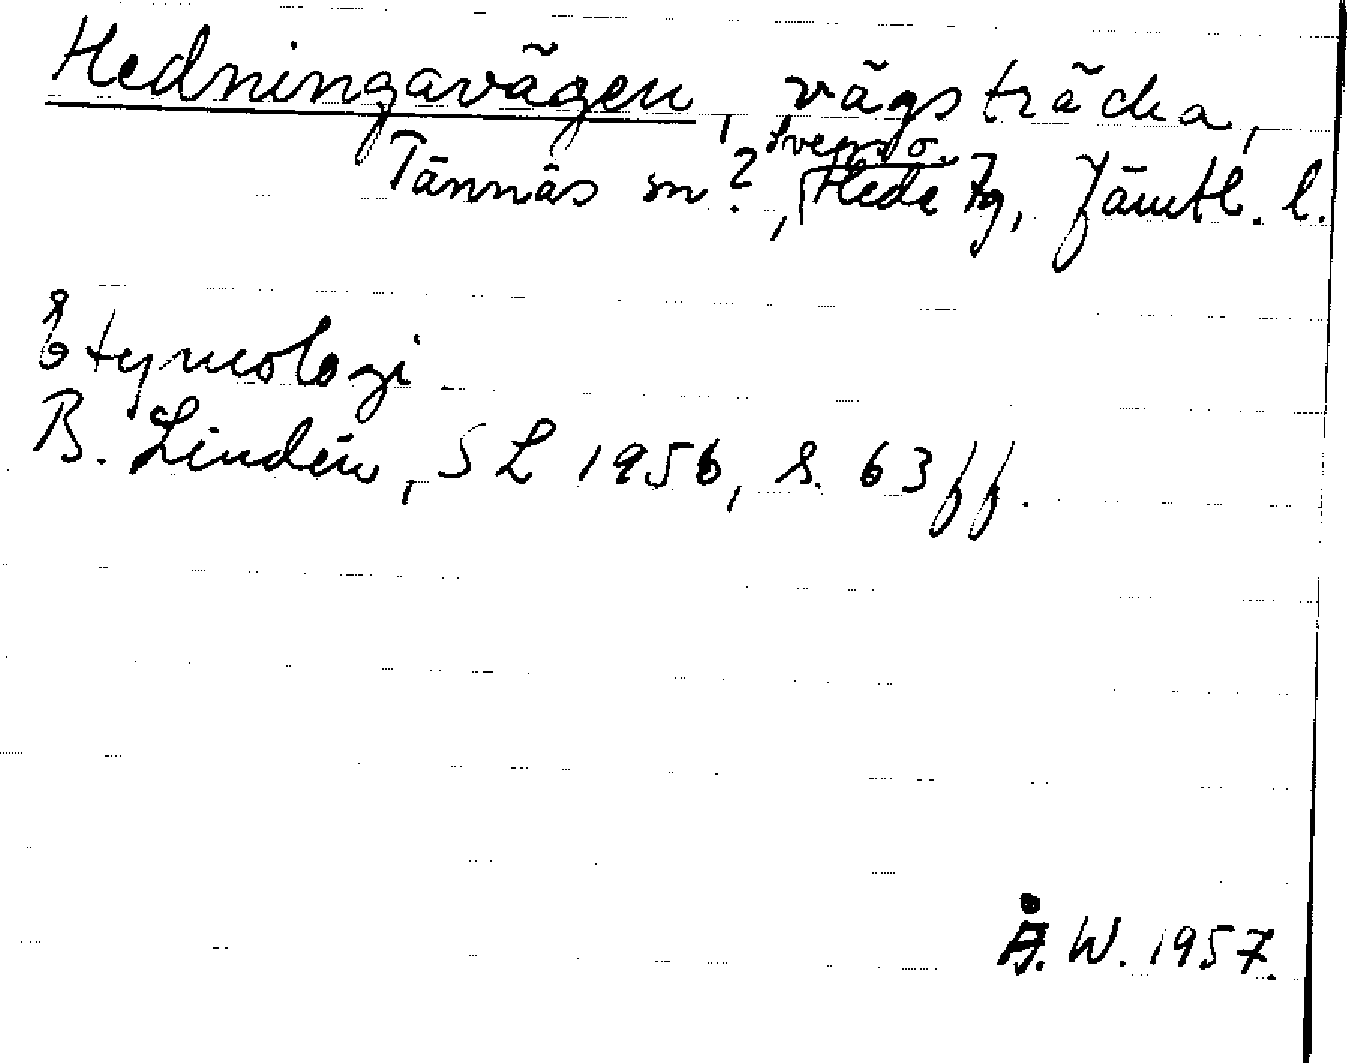 Hedningavägen, vägsträcka,
Tännäs sn?, Svegs o. Hede tg, Jämtl. l.
Etymologi
B. Lindén, SL 1956, s. 63 ff.
Å. W. 1957.